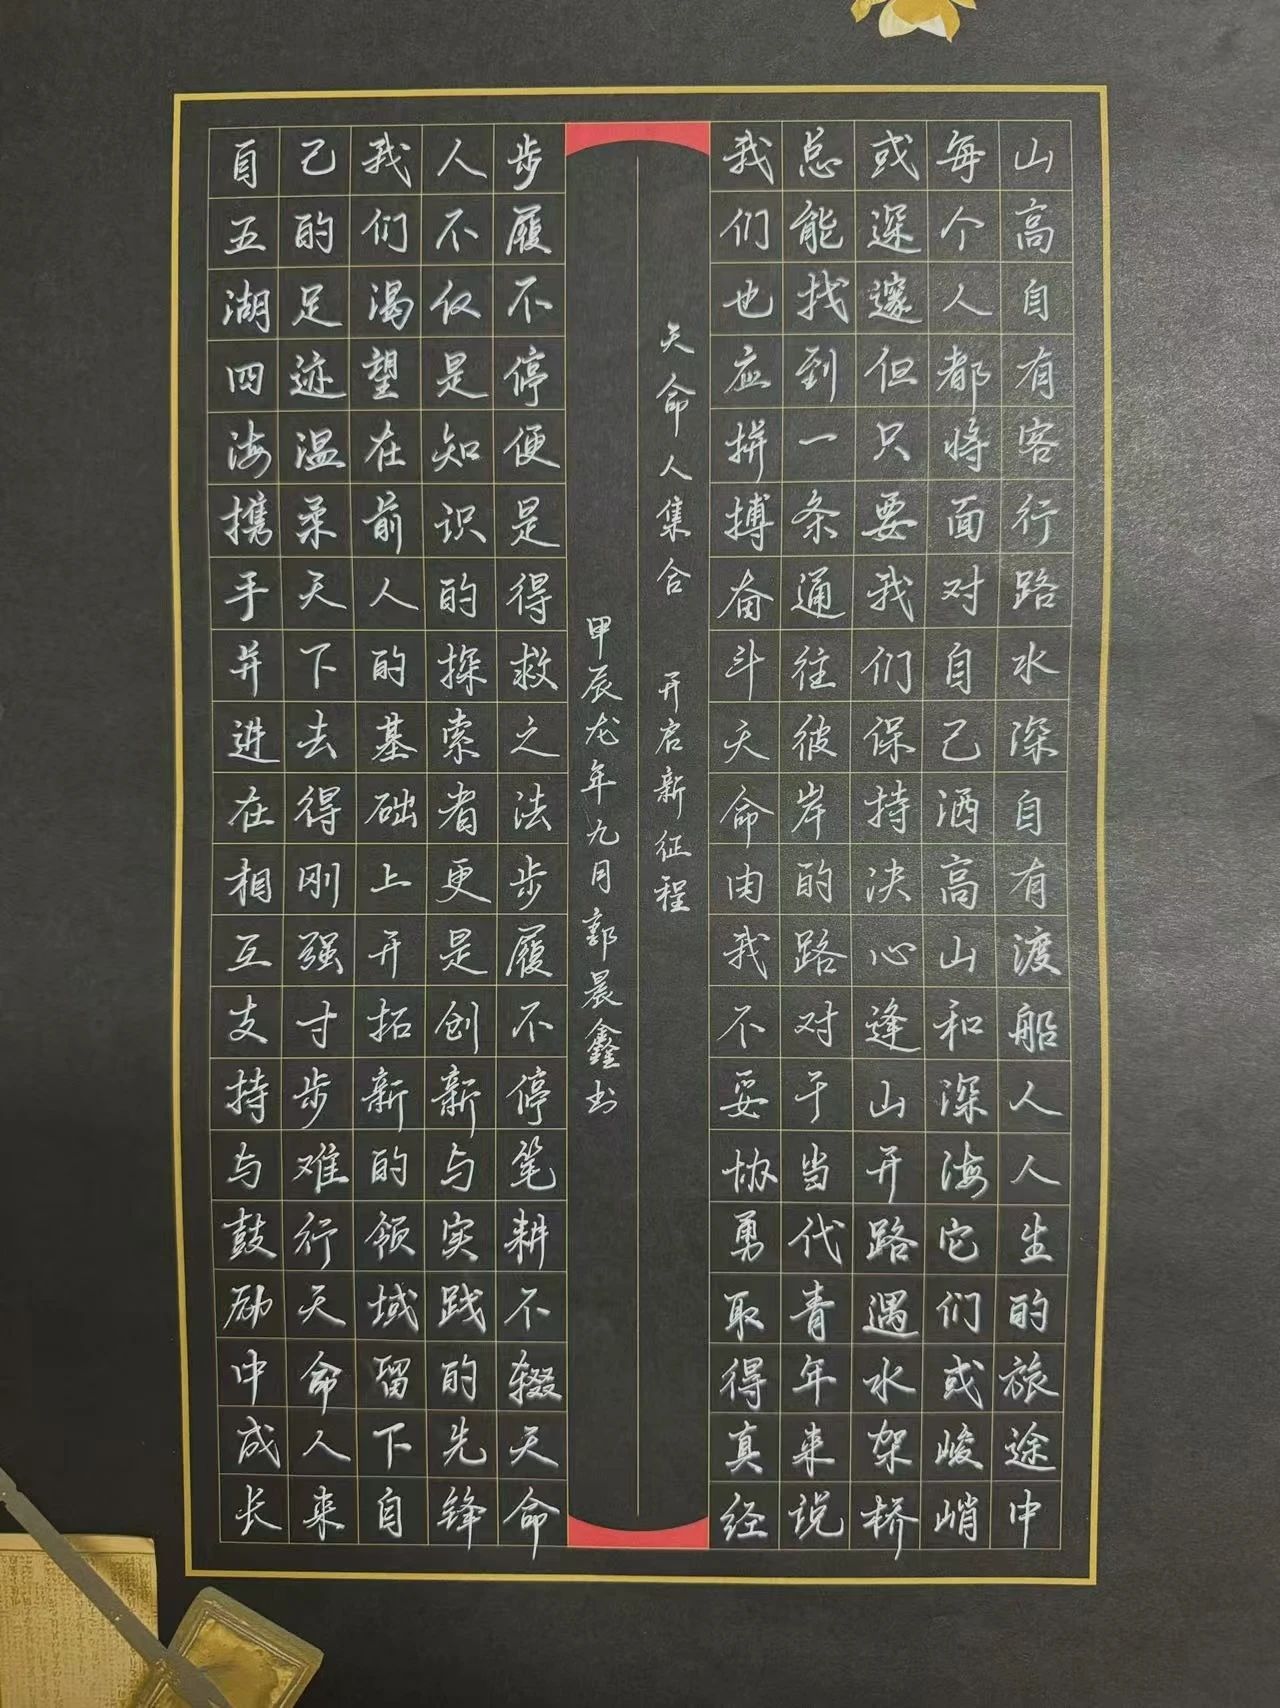 山高自有客行路水深自有渡船人人生的旅途中
每个人都将面对自己洒高山和深海它们或峻峭
或深邃但只要我们保持决心逢山开路遇水架桥
总能找到一条通往彼岸的路对于当代青年来说
我们也应拼搏奋斗天命由我不妥协勇取得真经
天命人集合 开启新征程
甲辰龙年九月郭晨鑫书
步履不停便是得救之法步履不停笔耕不辍天命
人不仅是知识的探索者更是创新与实践的先锋
我们渴望在前人的基础上开拓新的领域留下自
己的足迹温柔天下去得刚强寸步难行天命人来
自五湖四海携手并进在相互支持与鼓励中成长